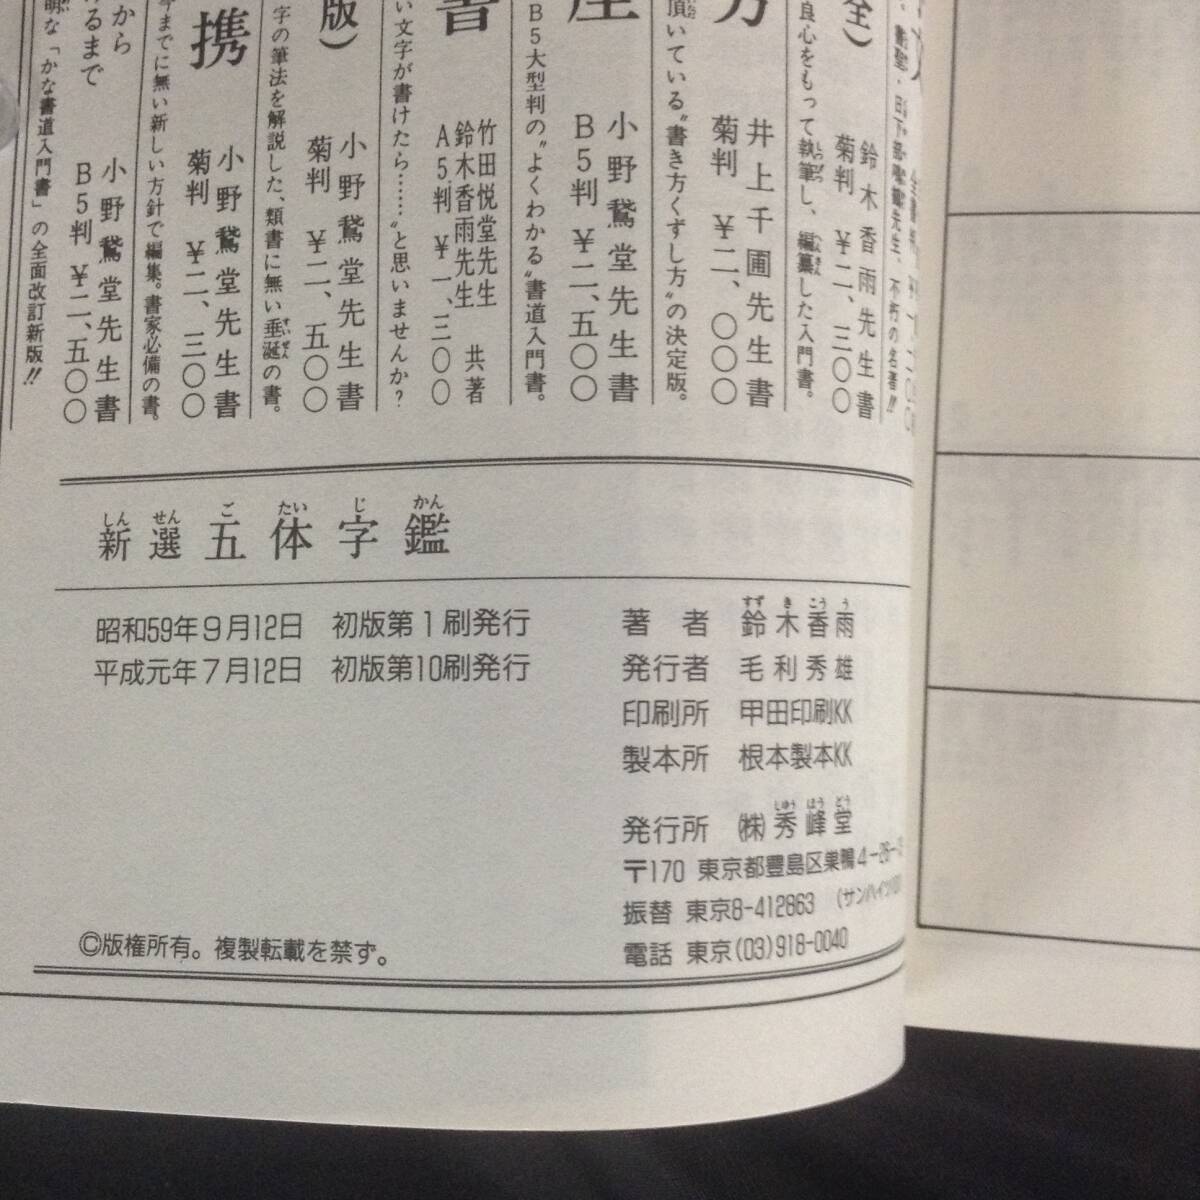 全)
鈴木香雨先生書
菊判 ¥二、三〇〇
良心をもって執筆し、編纂した入門書。
方
井上千圃先生書
菊判 ¥二、〇〇〇
頂いている〝書き方くずし方〟の決定版。
小野鵞堂先生書
B5判 ¥二、五〇〇
B5大型判の〝よくわかる〟書道入門書。
書
竹田悦堂先生
鈴木香雨先生 共著
A5判 ¥一、三〇〇
い文字が書けたら……〟と思いませんか?
版)
小野鵞堂先生書
菊判 ¥二、五〇〇
字の筆法を解説した、類書に無い垂涎の書。
携
小野鵞堂先生書
菊判 ¥二、三〇〇
今までに無い新しい方針で編集。書家必備の書。
から
るまで
小野鵞堂先生書
B5判 ¥二、五〇〇
明な「かな書道入門書」の全面改訂新版!!
新選五体字鑑
しん せん ご たい じ かん
昭和59年9月12日 初版第1刷発行
平成元年7月12日 初版第10刷発行
著者 鈴木香雨
すず き こう う
発行者 毛利秀雄
印刷所 甲田印刷KK
製本所 根本製本KK
発行所 (株)秀峰堂
しゅう ほう どう
〒170 東京都豊島区巣鴨4-26-
振替 東京8-412863 (サンハイツ
電話 東京(03)918-0040
©版権所有。複製転載を禁ず。